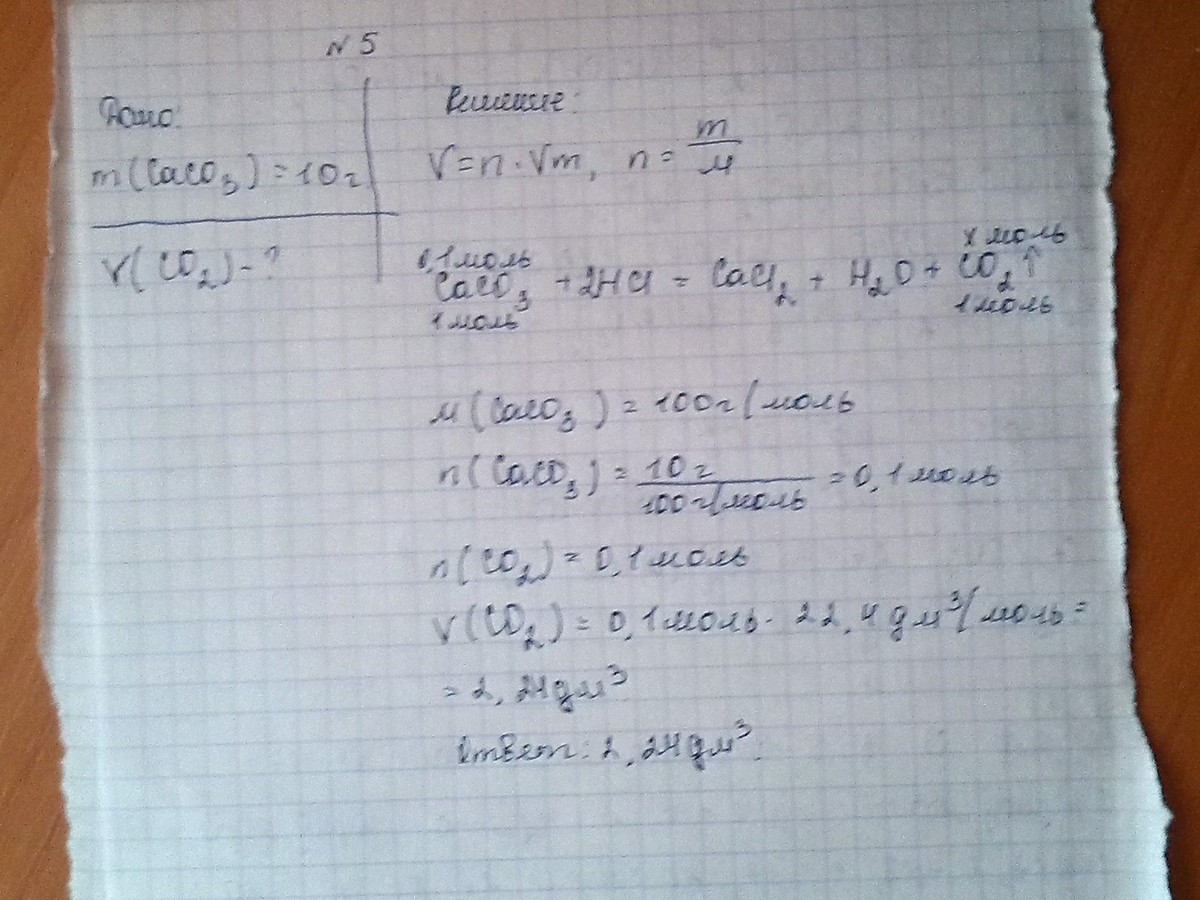 N 5
Дано:
m(CaCO₃) = 10 г
V(CO₂) - ?
Решение:
V = n · Vm, n = m/M
0,1 моль x моль
CaCO₃ + 2HCl = CaCl₂ + H₂O + CO₂↑
1 моль 1 моль
M(CaCO₃) = 100 г/моль
n(CaCO₃) = 10 г / 100 г/моль = 0,1 моль
n(CO₂) = 0,1 моль
V(CO₂) = 0,1 моль · 22,4 дм³/моль =
= 2,24 дм³
Ответ: 2,24 дм³.